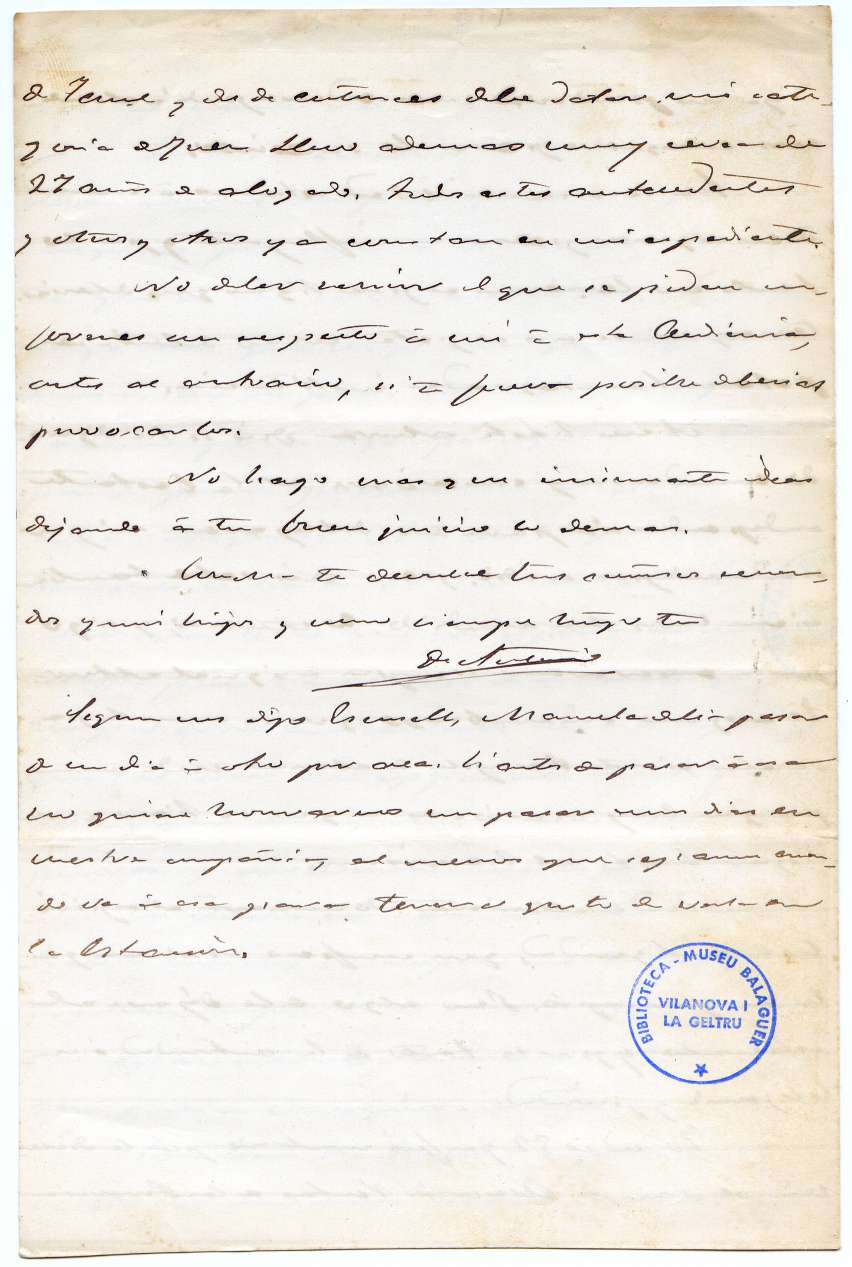 de Teruel y desde entonces debe datar mi cate-
goria de Juez. Llevo ademas muy cerca de
27 años de abogado. Todos estos antecedentes
y otros y otros ya constan en mi espediente.
No debes sentir el que se pidan in-
formes con respecto á mi á esta Audiencia,
antes al contrario, si te fuera posible deberias
provocarlos.
No hago mas que insinuarte ideas
dejando á tu buen juicio lo demas.
te devuelve tus cariñosos recuer-
dos y mis hijos y como siempre tuyo tu
Antonio
Segun nos dijo Manuela debia pasar
de un dia á otro por aca. Si antes de pasar á esa
no quiere honrarnos con pasar unos dias en
nuestra compañia, al menos que sepamos cuan-
do va á esa para tener el gusto de verla en
la Estacion.
BIBLIOTECA - MUSEU BALAGUER
VILANOVA I
LA GELTRU